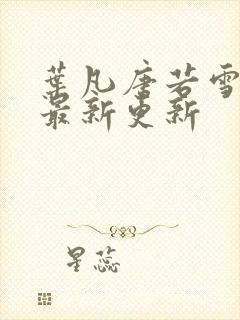 葉凡唐若雪
最新更新
星蕊